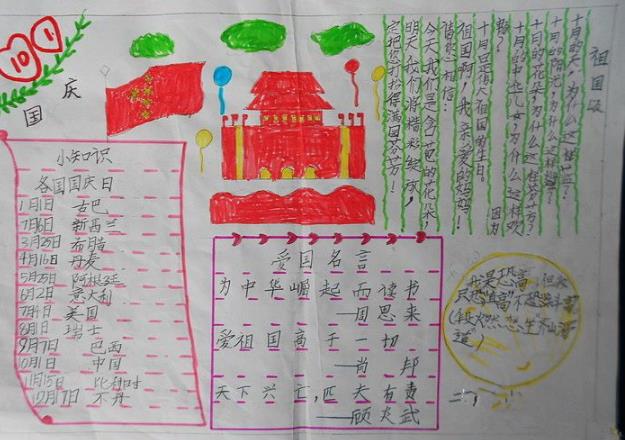 10 1
国庆
小知识
各国国庆日
1月1日 古巴
7月6日 新西兰
3月25日 布腊
4月16日 丹麦
5月25日 阿根廷
6月2日 意大利
7月4日 美国
8月1日 瑞士
9月7日 巴西
10月1日 中国
11月15日 比利时
12月17日 不丹
祖国颂
十月的天，为什么这样蓝？
十月的阳光，为什么这样
十月的花朵，为什么这样芬芳？
十月的中华儿女，为什么这样欢
颜？
因为
十月回是伟大祖国的生日。
祖国啊，我亲爱的妈妈！
请您相信：
今天我们是含苞的花朵，
明天我们将精彩绽放，
定把您打扮得满园芬芳！
爱国名言
为中华崛起而读书
—周恩来
爱祖国高于一切
—肖邦
天下兴亡，匹夫有责
——顾炎武
我是恐高，但今